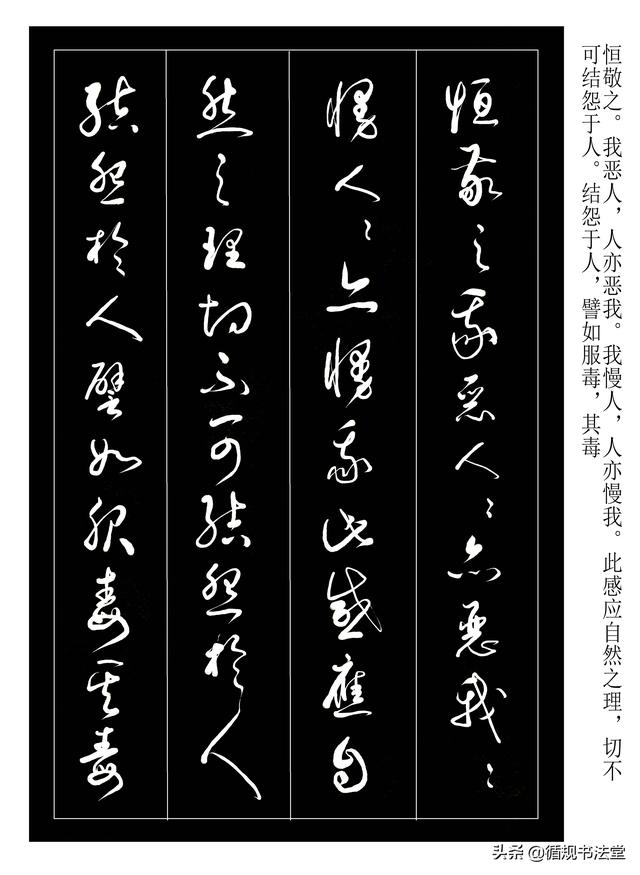 恒敬之。我恶人，人亦恶我。我慢人，人亦慢我。此感应自然之理，切不
可结怨于人。结怨于人，譬如服毒，其毒
恒敬之我惡人々亦惡我々
慢人々亦慢我此感應自
然之理切不可結怨於人
結怨於人譬如服毒其毒
头条 @循规书法堂